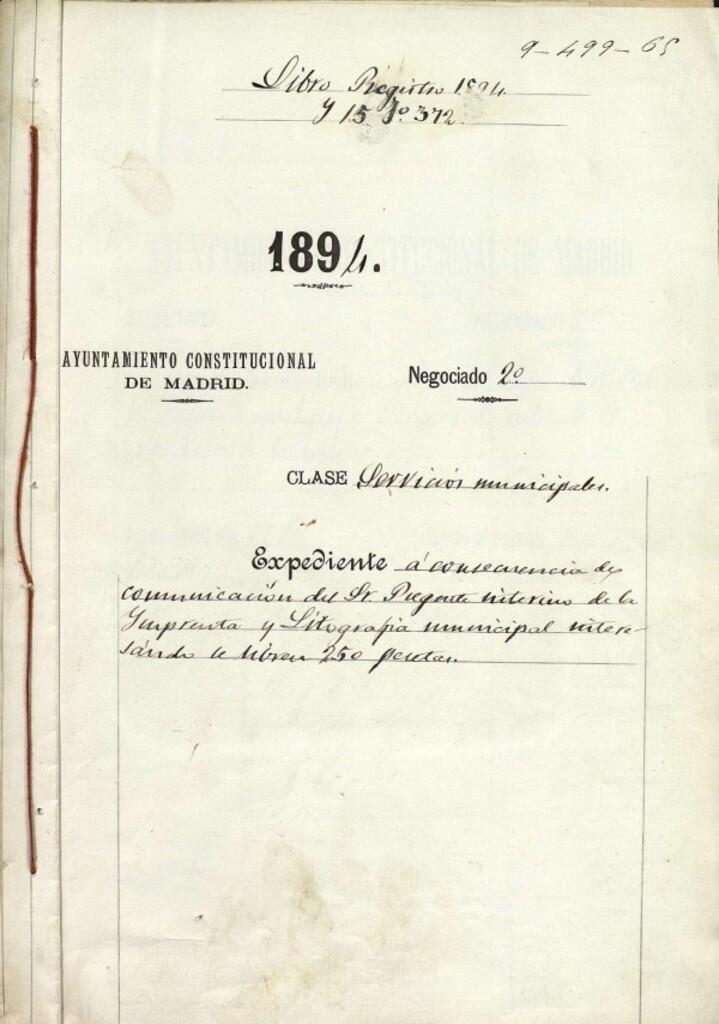 9-499-65
Libro Registro 1894.
Y 15 Jº 372.
1894.
AYUNTAMIENTO CONSTITUCIONAL
DE MADRID.
Negociado 2º
CLASE Servicios municipales.
Expediente á consecuencia de
comunicación del Sr. Regente interino de la
Ymprenta y Litografía municipal intere-
sándo se libren 250 pesetas.